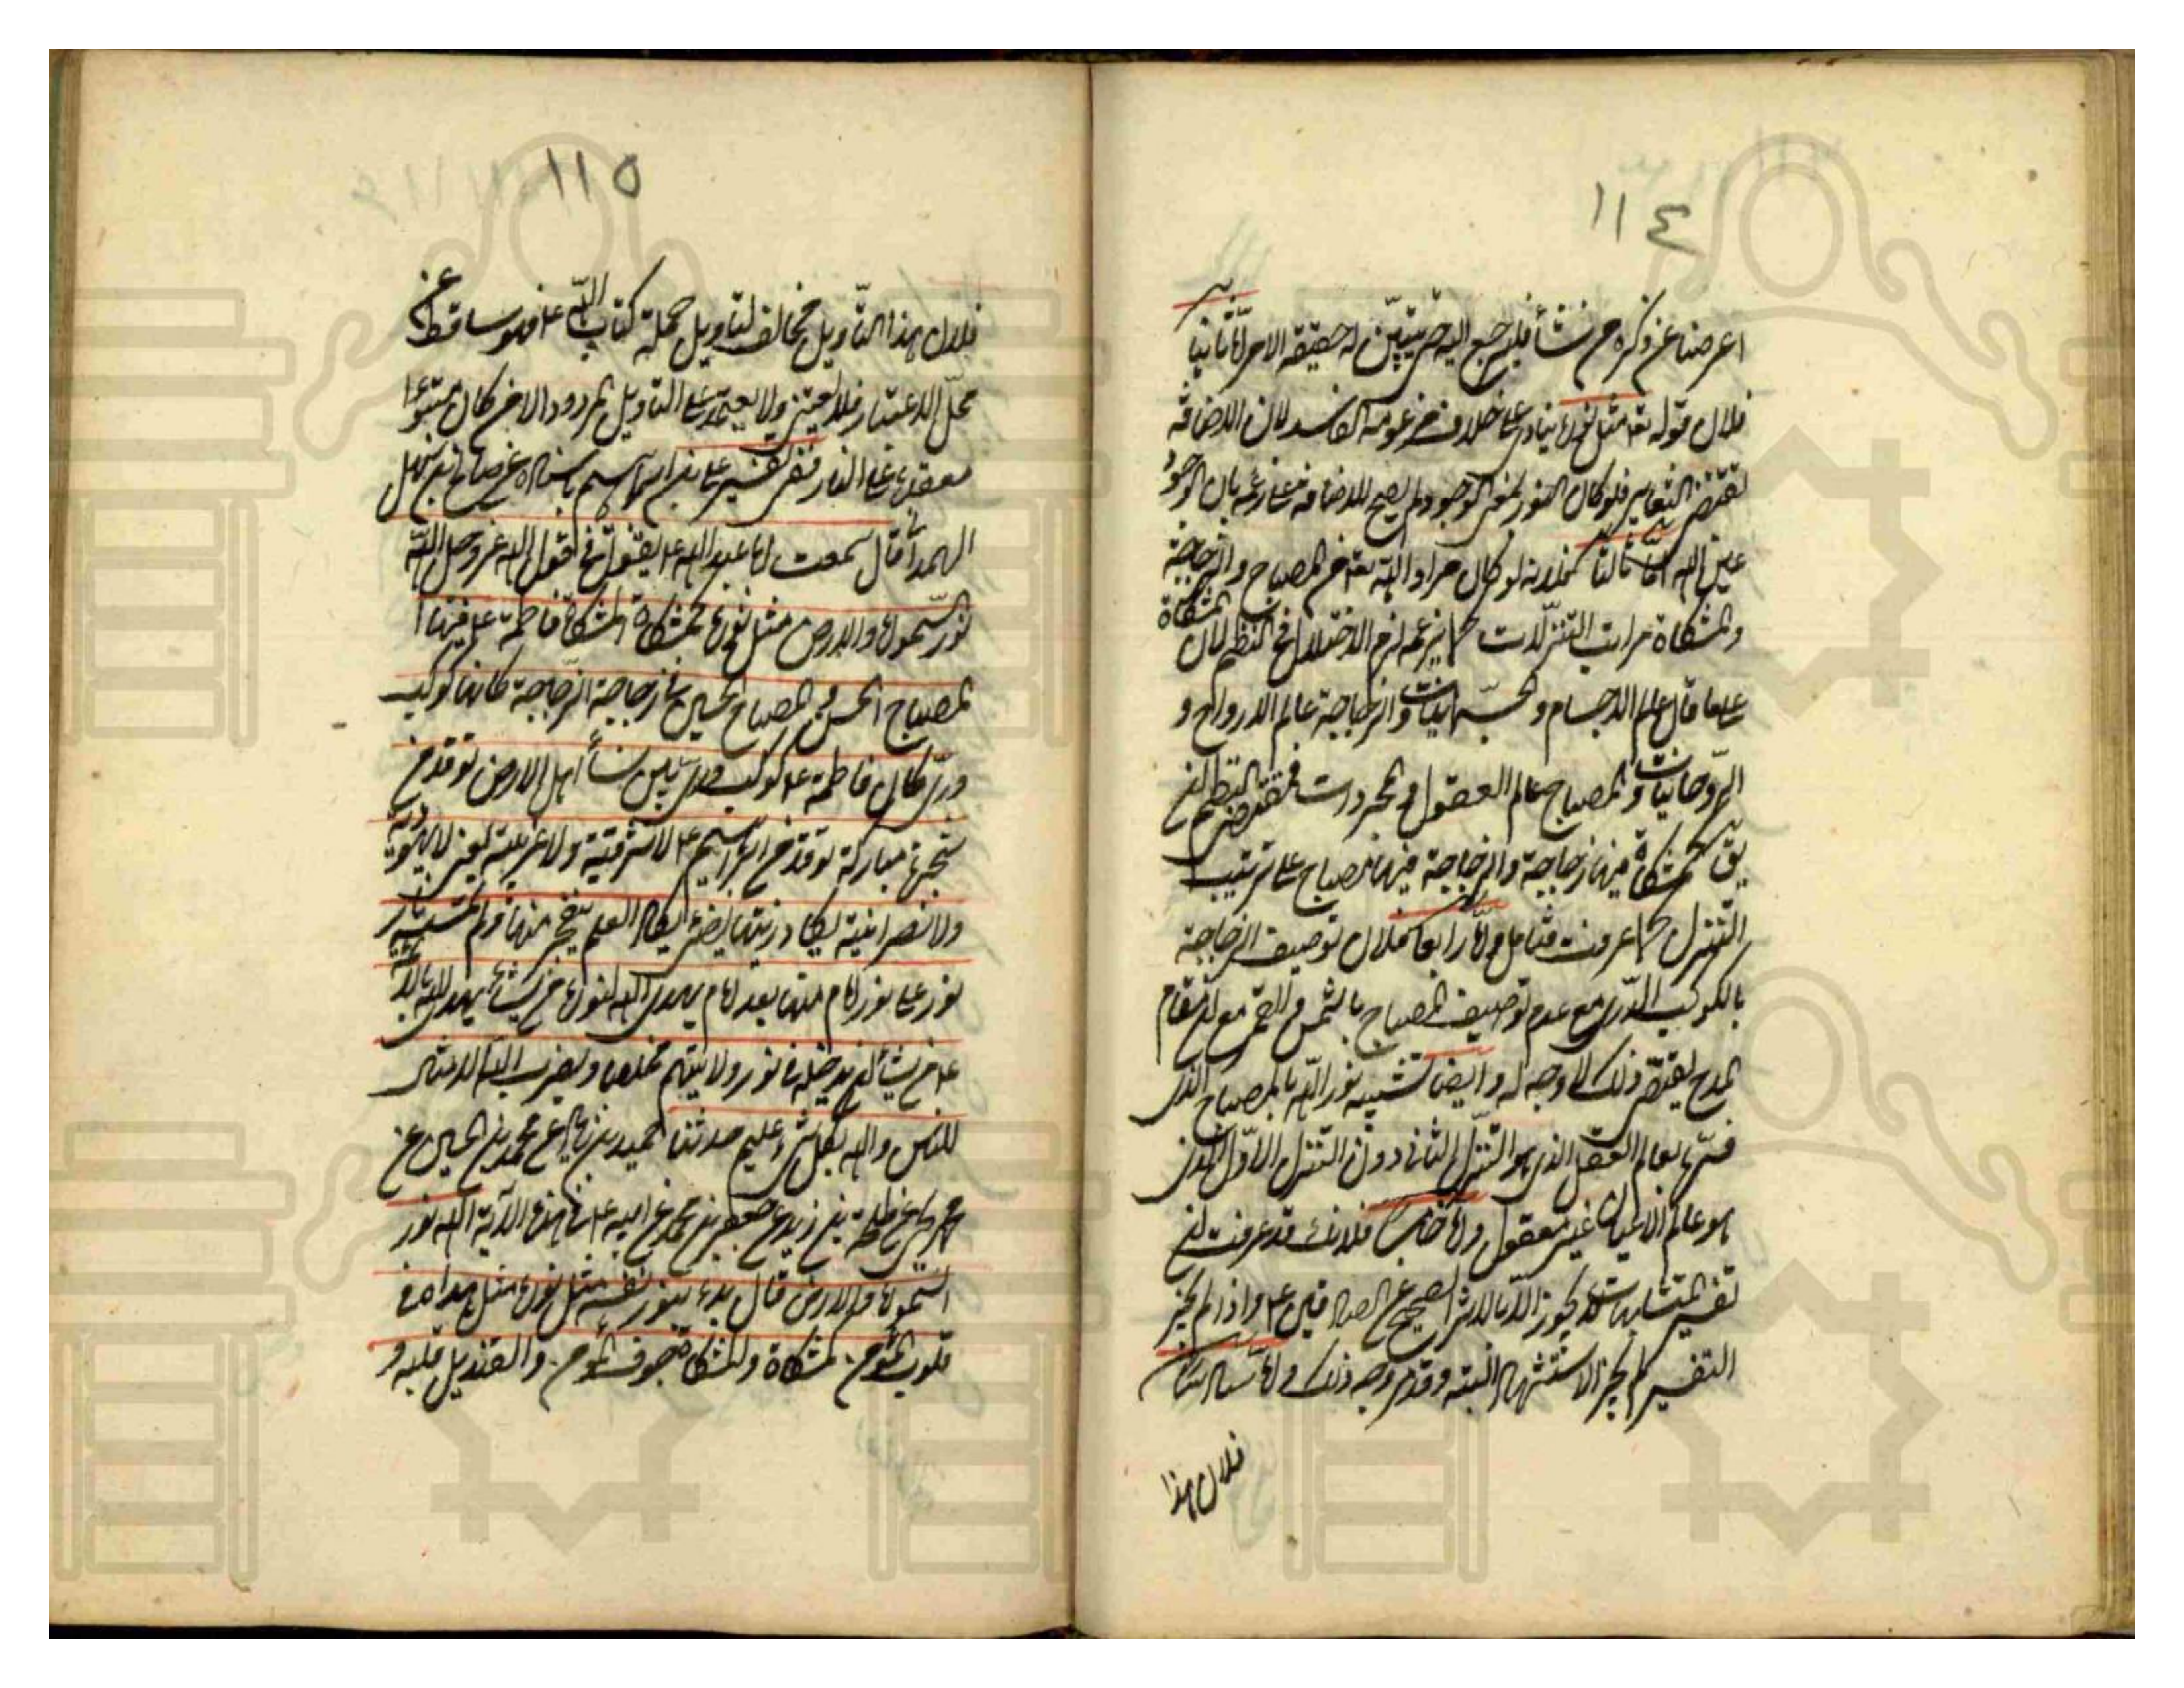 ١١٤
اعرضنا عن ذكره من شأ فليرجع اليه حتى يتبيّن له حقيقة الامر وامّا ثانيا
فلان قوله تع مثل نوره ينادى على خلاف مزعومه الفاسد لان الاضافة
تقتضى التغاير فلو كان النور بمعنى الوجود لم يصح الاضافة على زعمه بان الوجود
عين الله امّا ثالثا فلانه لو كان مراد الله تعه من المصباح والزجاجة
والمشكاة مراتب التنزلات كما يزعمه لزم الاختلال فى النظم لان المشكاة
على ما قال عالم الاجسام والجسمانيات والزجاجة عالم الارواح و
الروحانيات والمصباح عالم العقول والمجردات فمقتضى النظم ان
يق كمشكاة فيها زجاجة والزجاجة فيها مصباح على ترتيب
التنزل كما عرفت فتامل وامّا رابعا فلان توصيف الزجاجة
بالكوكب الدّرى مع عدم توصيف المصباح بالشمس والقمر مع ان مقام
المدح يقتضى ذلك لا وجه له وايضا تشبيه نور الله بالمصباح الذى
فسّره بعالم العقل الذى هو التنزل الثانى دون التنزل الاوّل الذى
هو عالم الاعيان غير معقول وامّا خامسا فلانك قد عرفت ان
تفسير المتشابهات لا يجوز الّا بالاثر الصحيح عن الصادقين ع وإذا لم يجز
التفسير لم يجز الاستشهاد البتة وقد مر وجه ذلك وامّا سادسا
فلان هذا
١١٥
فلان هذا التأويل مخالف لتاويل حملة كتاب الله ع فهو ساقط عن
محلّ الاعتبار فلا يعتنى ولا يعتمد على التاويل المردود الا من كان متبوّءا
مقعده على النار ففى تفسير على بن ابراهيم باسناده عن صالح بن سهل
الهمدانى قال سمعت ابا عبد الله ع يقول فى قول الله عز وجل الله
نور السموات والارض مثل نوره كمشكاة المشكاة فاطمة ع فيها
المصباح الحسن والمصباح الحسين فى زجاجة الزجاجة كانها كوكب
درى كان فاطمة ع كوكب درى بين نسأ اهل الارض توقد من
شجرة مباركة توقد من ابراهيم ع لا شرقية ولا غربية يعنى لا يهودية
ولا نصرانية يكاد زيتها يضئ يكاد العلم ينفجر منها ولو لم تمسسه نار
نور على نور امام منها بعد امام يهدى الله لنوره من يشأ يهدى الله بالائمة
ع من يشأ ان يدخله فى نور ولايتهم مخلصا ويضرب الله الامثال
للناس والله بكل شئ عليم حدثنا حميد بن زياد عن محمد بن الحسين عن
محمد بن يحيى عن طلحة بن زيد عن جعفر بن محمد عن ابيه ع فى هذه الآية الله نور
السموات والارض قال بدء بنور نفسه مثل نوره مثل هداه فى
قلوب المؤمن كمشكاة والمشكاة جوف المؤمن والقنديل قلبه و